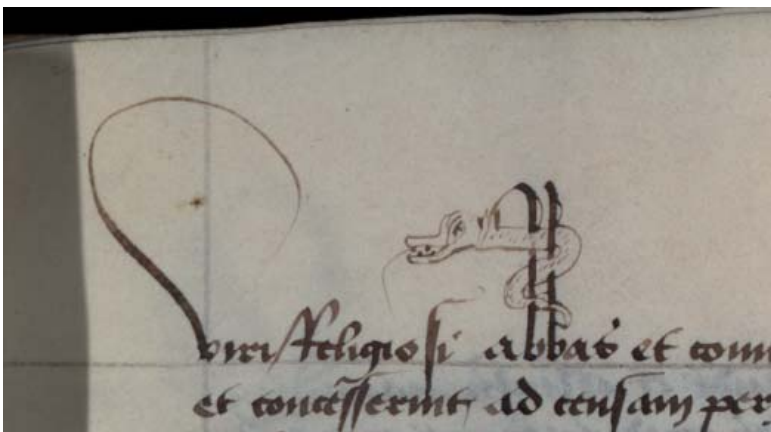 viri Religiosi abbas et conu
et concesserint ad censam per